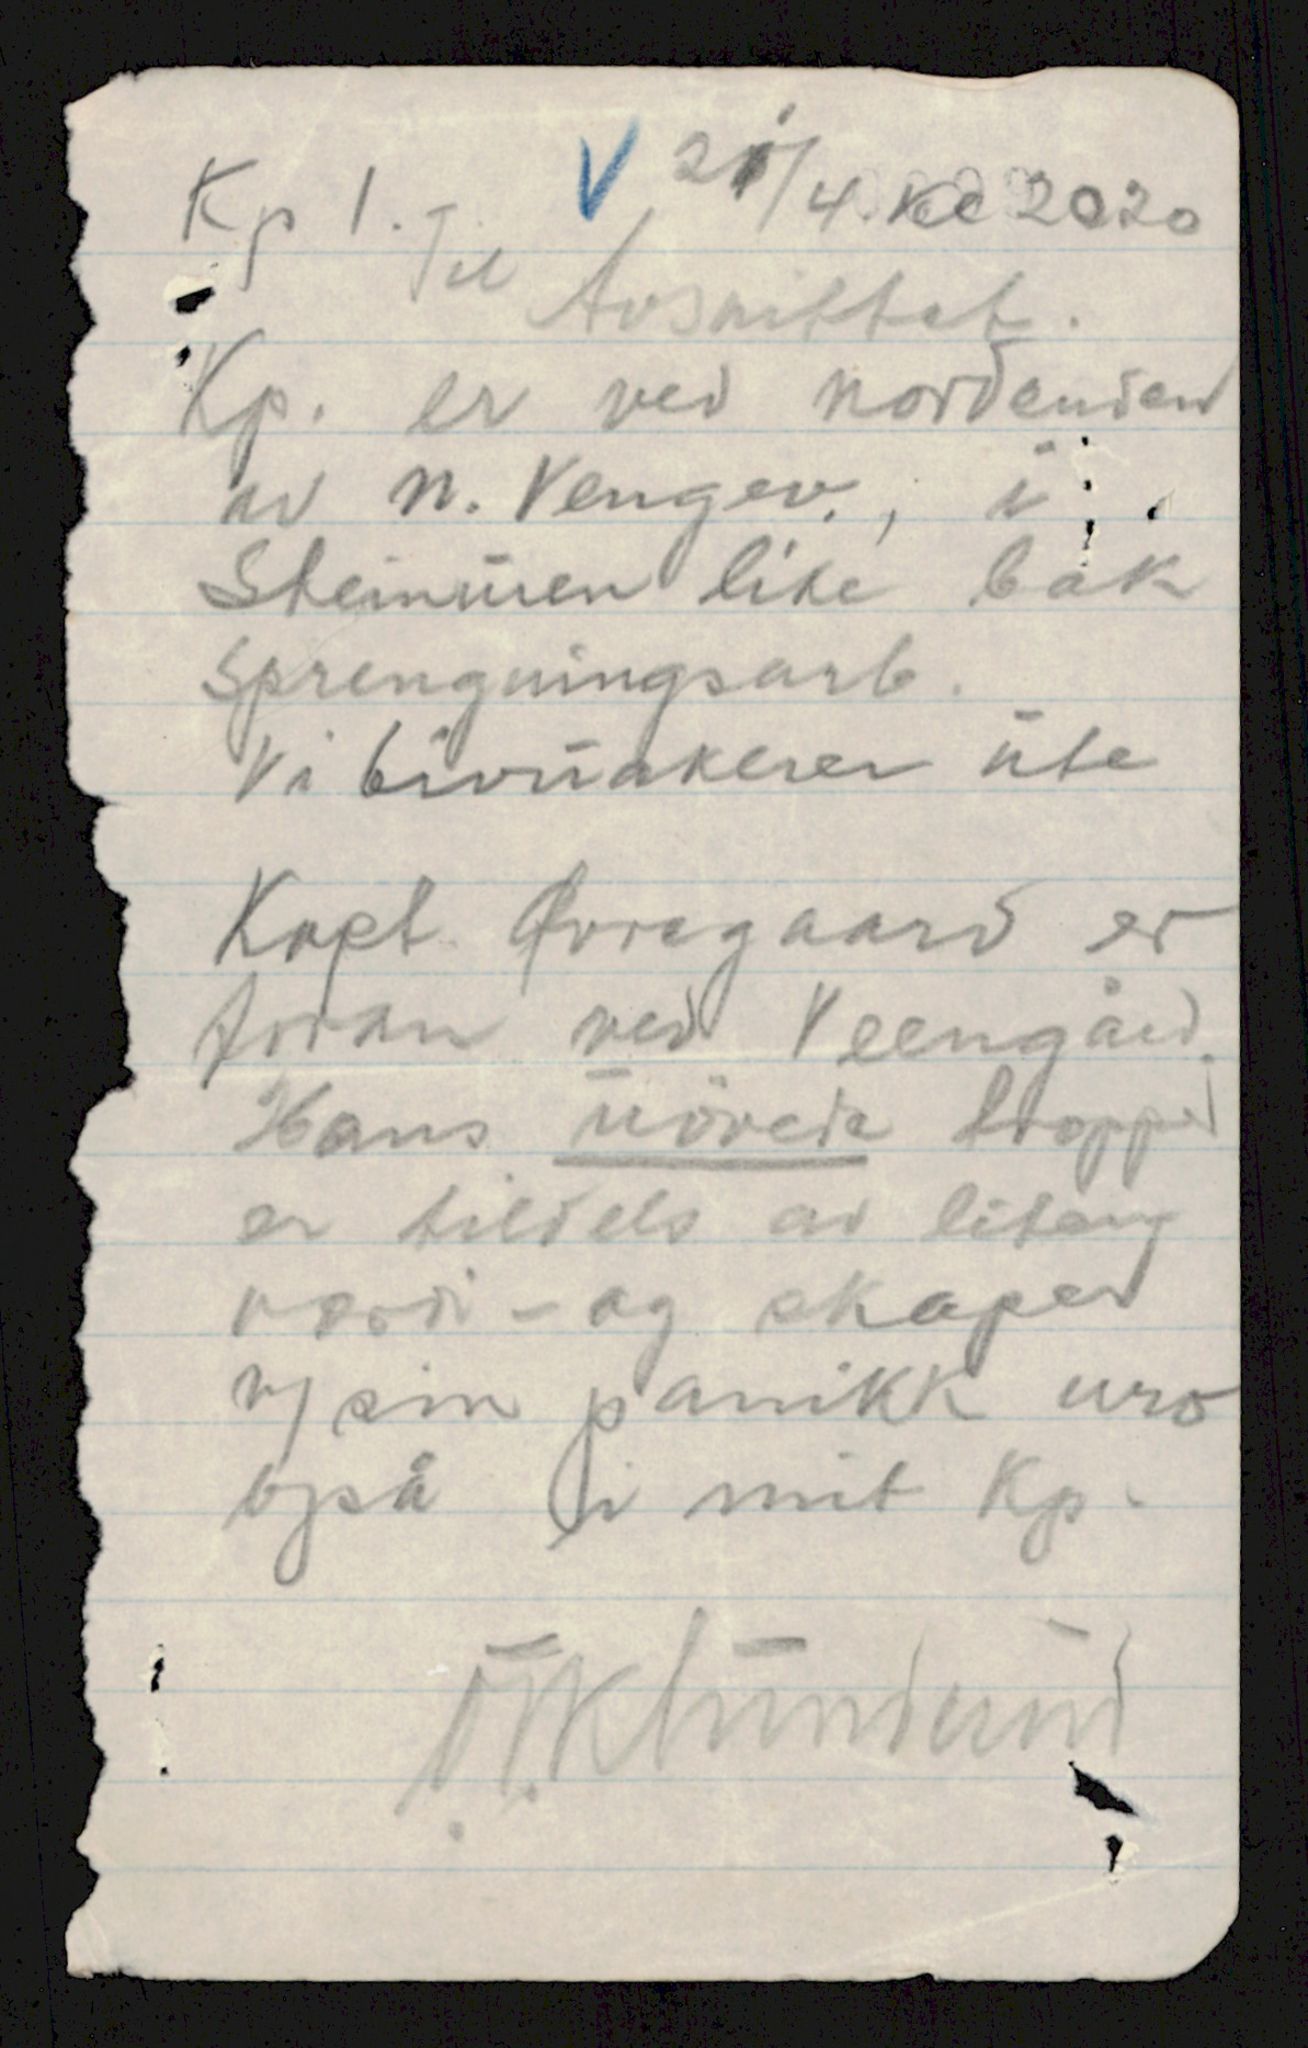 Kp 1. V 21/4. kl 2020
Til Avsnittet.
Kp. er ved nordenden
av N. Vengev., i
Steinuren like bak
sprengningsarb.
Vi bivuakerer ute
Kapt. Øvregaard er
foran ved Veengård.
Hans uövede tropper
er tildels av liten
verdi - og skaper
v/ sin panikk uro
også i mit Kp.